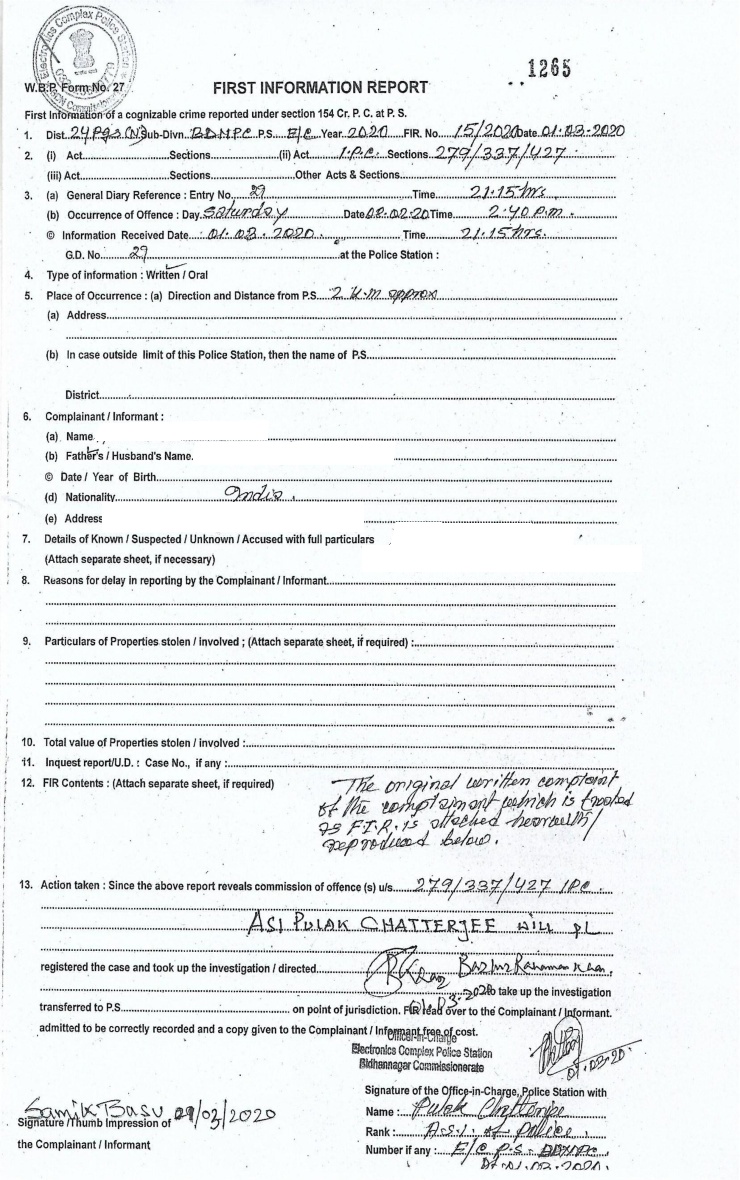 1265
W.B.P. Form No. 27
FIRST INFORMATION REPORT
First Information of a cognizable crime reported under section 154 Cr. P. C. at P. S.
1. Dist. 24 Pgs (N) Sub-Divn. BDNPC P.S. E/C Year 2020 FIR. No. 15/2020 Date 01-03-2020
2. (i) Act......Sections......(ii) Act I.P.C. Sections 279/337/427
(iii) Act......Sections......Other Acts & Sections......
3. (a) General Diary Reference : Entry No. 29 Time 21.15 hrs
(b) Occurrence of Offence : Day Saturday Date 08.02.20 Time 2.40 P.m.
© Information Received Date 01.03.2020 Time 21.15 hrs.
G.D. No. 29 at the Police Station :
4. Type of information : Written / Oral
5. Place of Occurrence : (a) Direction and Distance from P.S. 2 K.m approx
(a) Address......
(b) In case outside limit of this Police Station, then the name of P.S......
District......
6. Complainant / Informant :
(a) Name
(b) Father's / Husband's Name.
© Date / Year of Birth......
(d) Nationality India.
(e) Address
7. Details of Known / Suspected / Unknown / Accused with full particulars
(Attach separate sheet, if necessary)
8. Reasons for delay in reporting by the Complainant / Informant......
9. Particulars of Properties stolen / involved ; (Attach separate sheet, if required) :......
10. Total value of Properties stolen / involved :......
11. Inquest report/U.D. : Case No., if any :......
12. FIR Contents : (Attach separate sheet, if required)
The original written complaint
of the complainant which is treated
as F.I.R. is attached herewith/
reproduced below.
13. Action taken : Since the above report reveals commission of offence (s) u/s. 279/337/427 IPC
ASI PULAK CHATTERJEE WILL PL
registered the case and took up the investigation / directed
to take up the investigation
transferred to P.S...... on point of jurisdiction. FIR read over to the Complainant / Informant.
admitted to be correctly recorded and a copy given to the Complainant / Informant free of cost.
Officer-in-Charge
Electronics Complex Police Station
Bidhannagar Commissionerate
01.03.20.
Signature of the Office-in-Charge, Police Station with
Samik Basu 01/03/2020
Name : Pulak Chatterjee
Signature /Thumb Impression of
Rank : A.S.I. of Police
the Complainant / Informant
Number if any : E/C P.S. BDNPC
Dt. 01.03.2020.